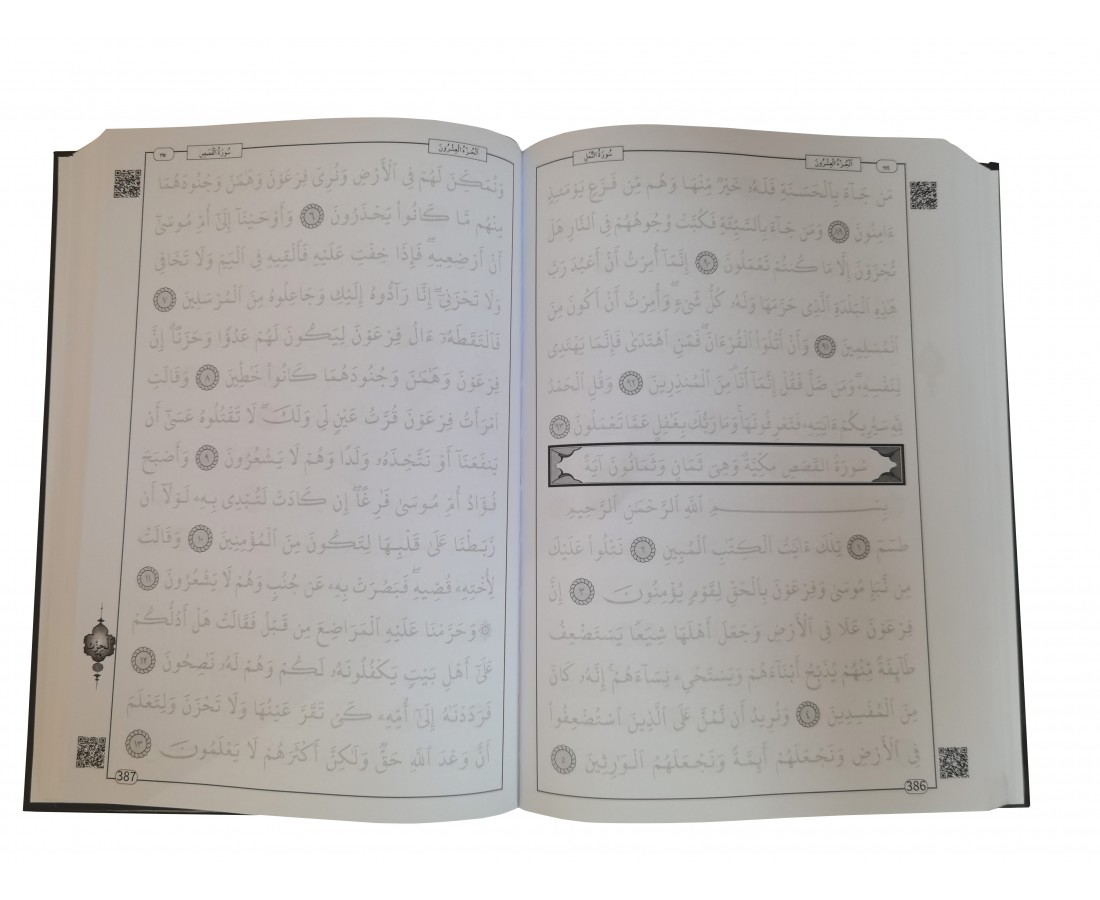 سُورَةُ النَّمْلِ
الجُزْءُ العِشْرُونَ
مَن جَآءَ بِٱلْحَسَنَةِ فَلَهُۥ خَيْرٌ مِّنْهَا وَهُم مِّن فَزَعٍ يَوْمَئِذٍ
ءَامِنُونَ ٨٩ وَمَن جَآءَ بِٱلسَّيِّئَةِ فَكُبَّتْ وُجُوهُهُمْ فِى ٱلنَّارِ هَلْ
تُجْزَوْنَ إِلَّا مَا كُنتُمْ تَعْمَلُونَ ٩٠ إِنَّمَآ أُمِرْتُ أَنْ أَعْبُدَ رَبَّ
هَٰذِهِ ٱلْبَلْدَةِ ٱلَّذِى حَرَّمَهَا وَلَهُۥ كُلُّ شَىْءٍ ۖ وَأُمِرْتُ أَنْ أَكُونَ مِنَ
ٱلْمُسْلِمِينَ ٩١ وَأَنْ أَتْلُوَا۟ ٱلْقُرْءَانَ ۖ فَمَنِ ٱهْتَدَىٰ فَإِنَّمَا يَهْتَدِى
لِنَفْسِهِۦ ۖ وَمَن ضَلَّ فَقُلْ إِنَّمَآ أَنَا۠ مِنَ ٱلْمُنذِرِينَ ٩٢ وَقُلِ ٱلْحَمْدُ
لِلَّهِ سَيُرِيكُمْ ءَايَٰتِهِۦ فَتَعْرِفُونَهَا ۚ وَمَا رَبُّكَ بِغَٰفِلٍ عَمَّا تَعْمَلُونَ ٩٣
سُورَةُ القَصَصِ مَكِّيَّةٌ وَهِيَ ثَمَانٍ وَثَمَانُونَ آيَةً
بِسْمِ ٱللَّهِ ٱلرَّحْمَٰنِ ٱلرَّحِيمِ
طسٓمٓ ١ تِلْكَ ءَايَٰتُ ٱلْكِتَٰبِ ٱلْمُبِينِ ٢ نَتْلُوا۟ عَلَيْكَ
مِن نَّبَإِ مُوسَىٰ وَفِرْعَوْنَ بِٱلْحَقِّ لِقَوْمٍ يُؤْمِنُونَ ٣ إِنَّ
فِرْعَوْنَ عَلَا فِى ٱلْأَرْضِ وَجَعَلَ أَهْلَهَا شِيَعًا يَسْتَضْعِفُ
طَآئِفَةً مِّنْهُمْ يُذَبِّحُ أَبْنَآءَهُمْ وَيَسْتَحْىِۦ نِسَآءَهُمْ ۚ إِنَّهُۥ كَانَ
مِنَ ٱلْمُفْسِدِينَ ٤ وَنُرِيدُ أَن نَّمُنَّ عَلَى ٱلَّذِينَ ٱسْتُضْعِفُوا۟
فِى ٱلْأَرْضِ وَنَجْعَلَهُمْ أَئِمَّةً وَنَجْعَلَهُمُ ٱلْوَٰرِثِينَ ٥
386
الجُزْءُ العِشْرُونَ
سُورَةُ القَصَصِ
وَنُمَكِّنَ لَهُمْ فِى ٱلْأَرْضِ وَنُرِىَ فِرْعَوْنَ وَهَٰمَٰنَ وَجُنُودَهُمَا
مِنْهُم مَّا كَانُوا۟ يَحْذَرُونَ ٦ وَأَوْحَيْنَآ إِلَىٰٓ أُمِّ مُوسَىٰٓ
أَنْ أَرْضِعِيهِ ۖ فَإِذَا خِفْتِ عَلَيْهِ فَأَلْقِيهِ فِى ٱلْيَمِّ وَلَا تَخَافِى
وَلَا تَحْزَنِىٓ ۖ إِنَّا رَآدُّوهُ إِلَيْكِ وَجَاعِلُوهُ مِنَ ٱلْمُرْسَلِينَ ٧
فَٱلْتَقَطَهُۥٓ ءَالُ فِرْعَوْنَ لِيَكُونَ لَهُمْ عَدُوًّا وَحَزَنًا ۗ إِنَّ
فِرْعَوْنَ وَهَٰمَٰنَ وَجُنُودَهُمَا كَانُوا۟ خَٰطِـِٔينَ ٨ وَقَالَتِ
ٱمْرَأَتُ فِرْعَوْنَ قُرَّتُ عَيْنٍ لِّى وَلَكَ ۖ لَا تَقْتُلُوهُ عَسَىٰٓ أَن
يَنفَعَنَآ أَوْ نَتَّخِذَهُۥ وَلَدًا وَهُمْ لَا يَشْعُرُونَ ٩ وَأَصْبَحَ
فُؤَادُ أُمِّ مُوسَىٰ فَٰرِغًا ۖ إِن كَادَتْ لَتُبْدِى بِهِۦ لَوْلَآ أَن
رَّبَطْنَا عَلَىٰ قَلْبِهَا لِتَكُونَ مِنَ ٱلْمُؤْمِنِينَ ١٠ وَقَالَتْ
لِأُخْتِهِۦ قُصِّيهِ ۖ فَبَصُرَتْ بِهِۦ عَن جُنُبٍ وَهُمْ لَا يَشْعُرُونَ ١١
۞ وَحَرَّمْنَا عَلَيْهِ ٱلْمَرَاضِعَ مِن قَبْلُ فَقَالَتْ هَلْ أَدُلُّكُمْ
عَلَىٰٓ أَهْلِ بَيْتٍ يَكْفُلُونَهُۥ لَكُمْ وَهُمْ لَهُۥ نَٰصِحُونَ ١٢
فَرَدَدْنَٰهُ إِلَىٰٓ أُمِّهِۦ كَىْ تَقَرَّ عَيْنُهَا وَلَا تَحْزَنَ وَلِتَعْلَمَ
أَنَّ وَعْدَ ٱللَّهِ حَقٌّ وَلَٰكِنَّ أَكْثَرَهُمْ لَا يَعْلَمُونَ ١٣
387